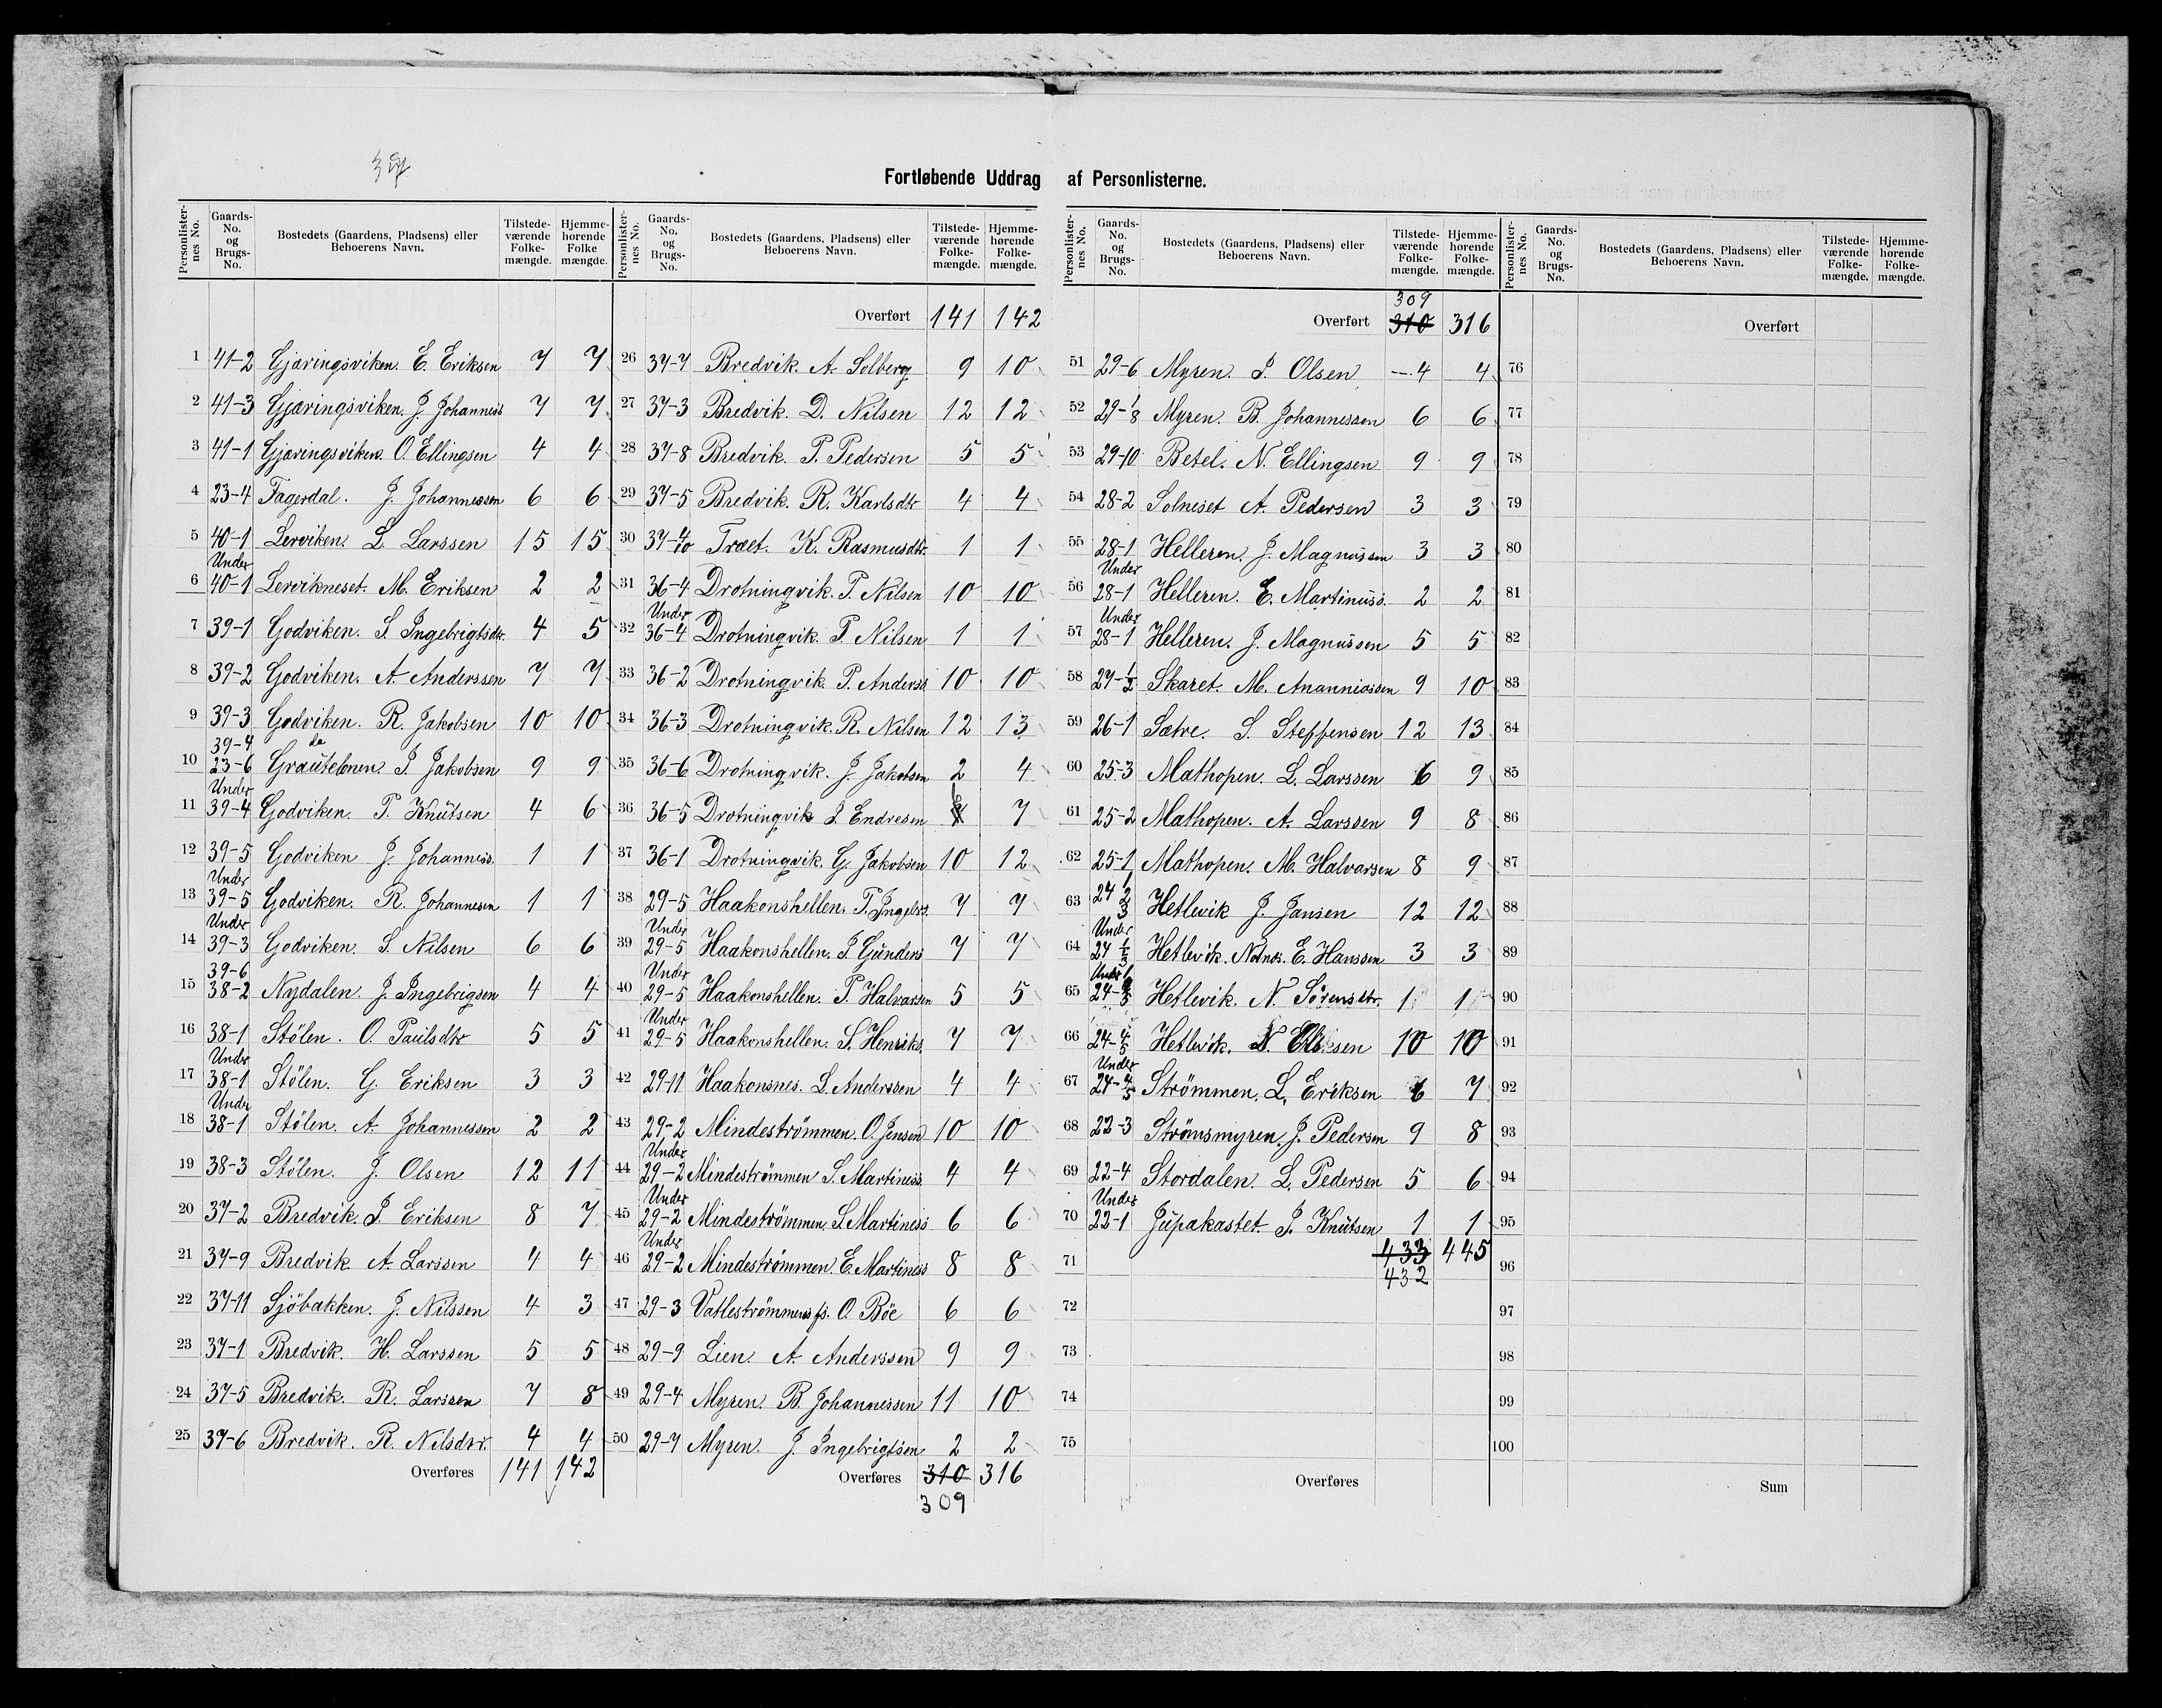 Fortløbende Uddrag af Personlisterne.
Personlisternes No. Gaards-No. og Brugs-No. Bostedets (Gaardens, Pladsens) eller Beboerens Navn. Tilstedeværende Folkemængde. Hjemmehørende Folkemængde.
1 41-2 Gjæringsviken. E. Eriksen 7 7
2 41-3 Gjæringsviken. J. Johanness 7 7
3 41-1 Gjæringsviken. O. Ellingsen 4 4
4 23-4 Fagerdal. J. Johannessen 6 6
5 40-1 Lerviken. L. Larssen 15 15
6 Under 40-1 Lervikneset. M. Eriksen 2 2
7 39-1 Godviken. S. Ingebrigtsdtr. 4 5
8 39-2 Godviken. A. Anderssen 7 7
9 39-3 Godviken. R. Jakobsen 10 10
10 39-4 23-6 J. Jakobsen 9 9
11 Under 39-4 Godviken. P. Knütsen 4 6
12 39-5 Godviken J. Johanness. 1 1
13 Under 39-5 Godviken. R. Johannesen 1 1
14 Under 39-3 Godviken. S. Nilsen 6 6
15 39-6 38-2 Nydalen. J. Ingebrigsen 4 4
16 38-1 Stölen. O. Paulsdtr 5 5
17 Under 38-1 Stölen. G. Eriksen 3 3
18 Under 38-1 Stölen. A. Johannessen 2 2
19 38-3 Stölen. J. Olsen 12 11
20 37-2 Bredvik. J. Eriksen 8 7
21 37-9 Bredvik A. Larssen 4 4
22 37-11 Sjöbakken. J. Nilssen 4 3
23 37-1 Bredvik. H. Larssen 5 5
24 37-5 Bredvik. R. Larssen 7 8
25 37-6 Bredvik. R. Nilsdtr. 4 4
Overføres 141 142
Personlisternes No. Gaards-No. og Brugs-No. Bostedets (Gaardens, Pladsens) eller Beboerens Navn. Tilstedeværende Folkemængde. Hjemmehørende Folkemængde.
Overført 141 142
26 37-7 Bredvik. A. Solberg 9 10
27 37-3 Bredvik. D. Nilsen 12 12
28 37-8 Bredvik. P. Pedersen 5 5
29 37-5 Bredvik. R. Karlsdtr 4 4
30 37-4/10 Træet. K. Rasmusdtr. 1 1
31 36-4 Drotningvik. P. Nilsen 10 10
32 Under 36-4 Drotningvik. P. Nilsen 1 1
33 36-2 Drotningvik. P. Anderss 10 10
34 36-3 Drotningvik. R. Nilsen 12 13
35 36-6 Drotningvik. J. Jakobsen 2 4
36 36-5 Drotningvik J. Endresen 6 7
37 36-1 Drotningvik. G. Jakobsen 10 12
38 29-5 Haakonshellen. P. Ingebr. 7 7
39 Under 29-5 Haakonshellen. J. Gunders 7 7
40 Under 29-5 Haakonshellen. P. Halvarsen 5 5
41 Under 29-5 Haakonshellen. S. Henriks. 7 7
42 29-11 Haakonsnes. L. Anderssen 4 4
43 29-2 Mindeströmmen. O. Jensen 10 10
44 Under 29-2 Mindeströmmen S. Martiness 4 4
45 Under 29-2 Mindeströmmen. S. Martiness 6 6
46 Under 29-2 Mindeströmmen. E. Martiness 8 8
47 29-3 Vatleströmmens fs. O. Böe 6 6
48 29-9 Lien. A. Anderssen 9 9
49 29-4 Myren. B. Johannessen 11 10
50 29-7 Myren. J. Ingebrigtsen 2 2
Overføres 310 316
309
Personlisternes No. Gaards-No. og Brugs-No. Bostedets (Gaardens, Pladsens) eller Beboerens Navn. Tilstedeværende Folkemængde. Hjemmehørende Folkemængde.
309
Overført 310 316
51 29-6 Myren. J. Olsen 4 4
52 29-1/8 Myren. B. Johannessen 6 6
53 29-10 Betel. N. Ellingsen 9 9
54 28-2 Solneset A. Pedersen 3 3
55 28-1 Helleren. J. Magnussen 3 3
56 Under 28-1 Helleren. E. Martinuss. 2 2
57 Under 28-1 Helleren. J. Magnussen 5 5
58 27-1/2 Skaret. M. Ananniassen 9 10
59 26-1 Sætre. S. Steffensen 12 13
60 25-3 Mathopen. L. Larssen 6 9
61 25-2 Mathopen. A. Larssen 9 8
62 25-1 Mathopen. M. Halvorsen 8 9
63 24 1 2 3 Hetlevik J. Jansen 12 12
64 Under 24 1/3 Hetlevik. E. Hanssen 3 3
65 Under Hetlevik. N. Sörensdtr. 1 1
66 24-4/5 Hetlevik. 10 10
67 Under 24-4/5 Strömmen. L. Eriksen 6 7
68 22-3 Strömsmyren. J. Pedersen 9 8
69 22-4 Stordalen. L. Pedersen 5 6
70 Under 22-1 Jupakastet. J. Knütsen 1 1
71 433 445
432
72
73
74
75
Overføres
Personlisternes No. Gaards-No. og Brugs-No. Bostedets (Gaardens, Pladsens) eller Beboerens Navn. Tilstedeværende Folkemængde. Hjemmehørende Folkemængde.
Overført
76
77
78
79
80
81
82
83
84
85
86
87
88
89
90
91
92
93
94
95
96
97
98
99
100
Sum